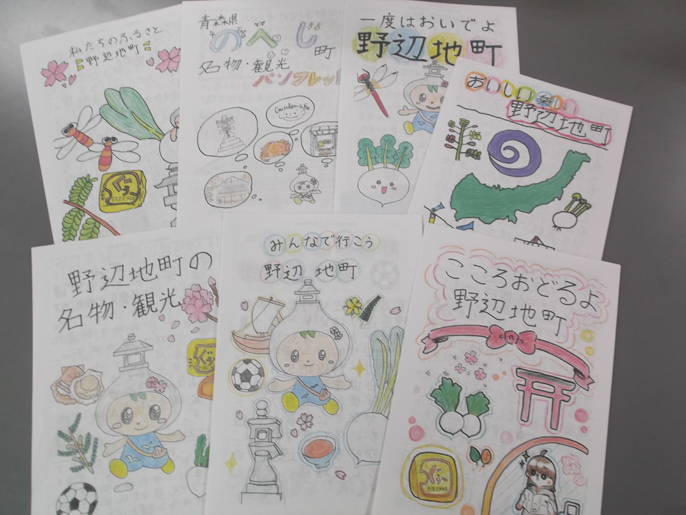 私たちのふるさと
野辺地町
青森県
のへじ町
名物・観光
パンフレット
一度はおいでよ
野辺地町
おいしい
野辺地町
野辺地町の
名物・観光
みんなで行こう
野辺地町
こころおどるよ
野辺地町